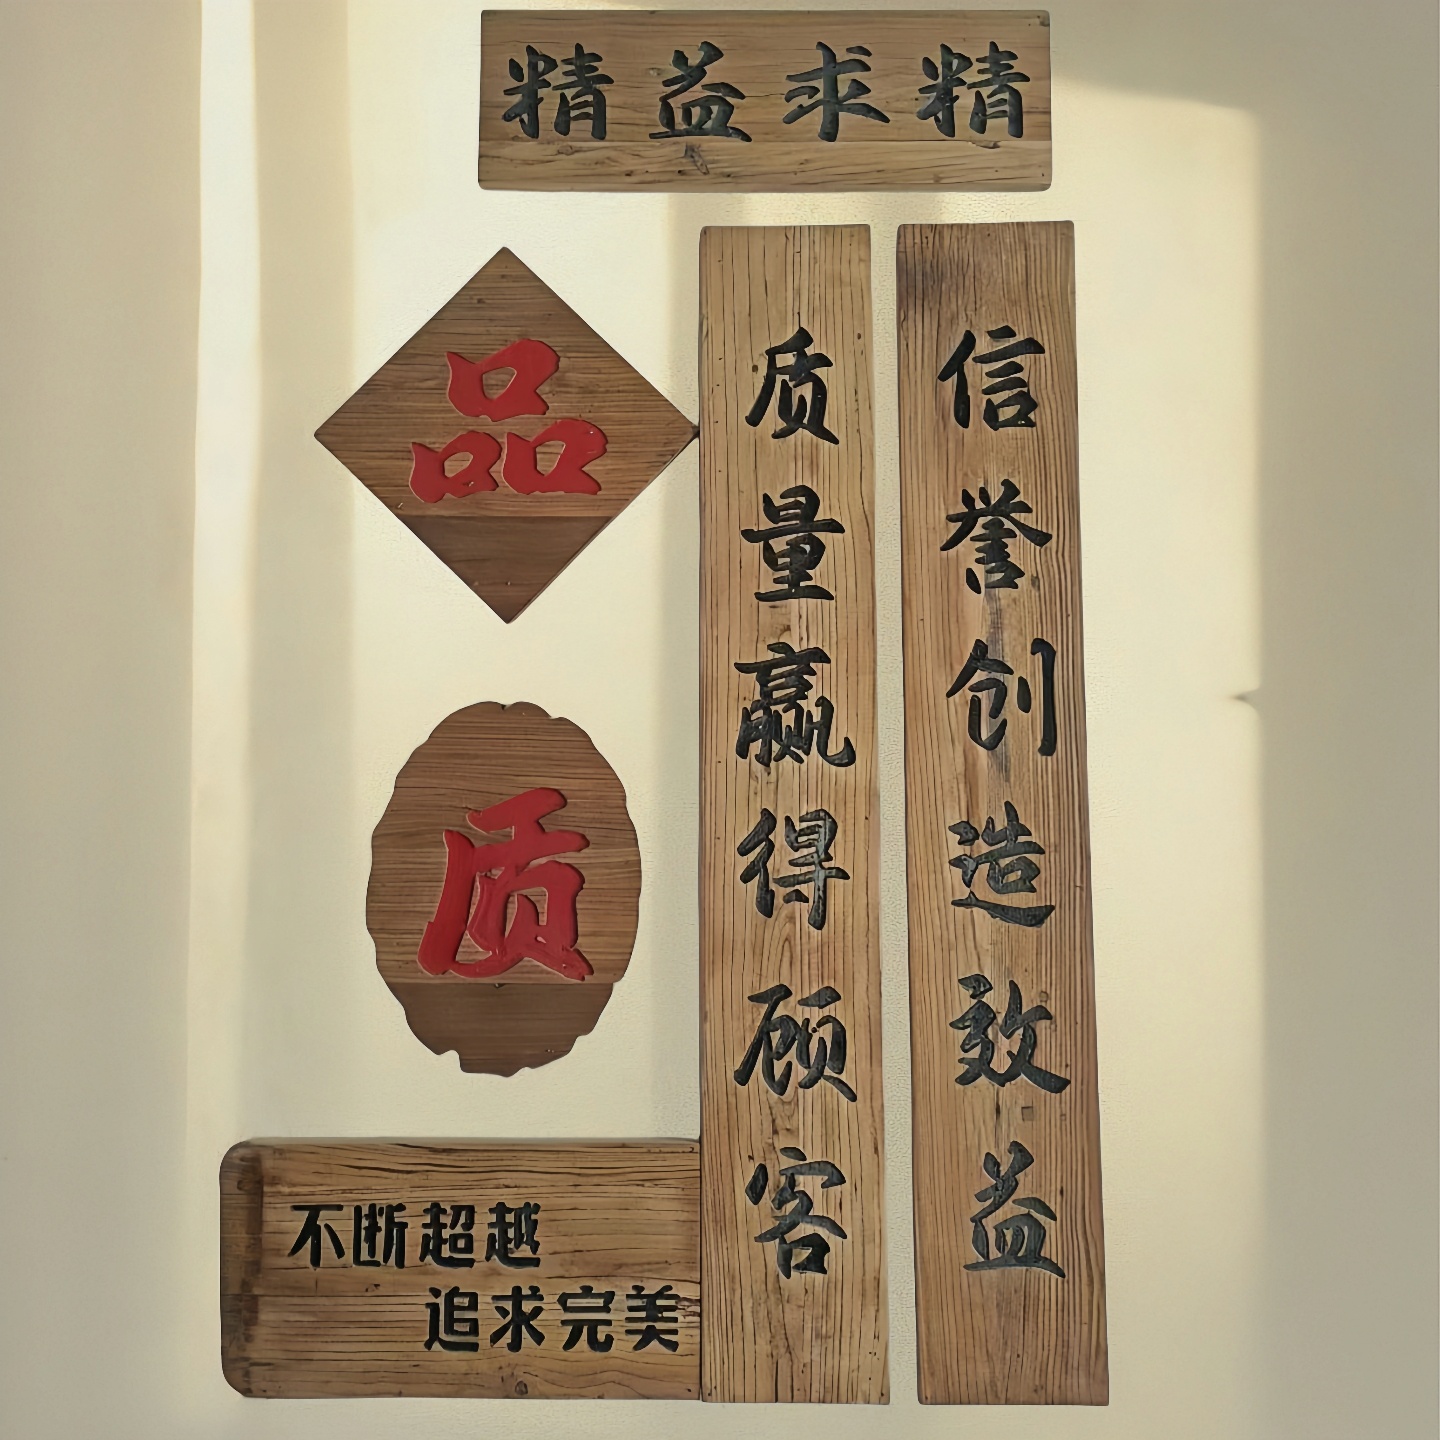 精益求精
品
质
质量赢得顾客
信誉创造效益
不断超越
追求完美